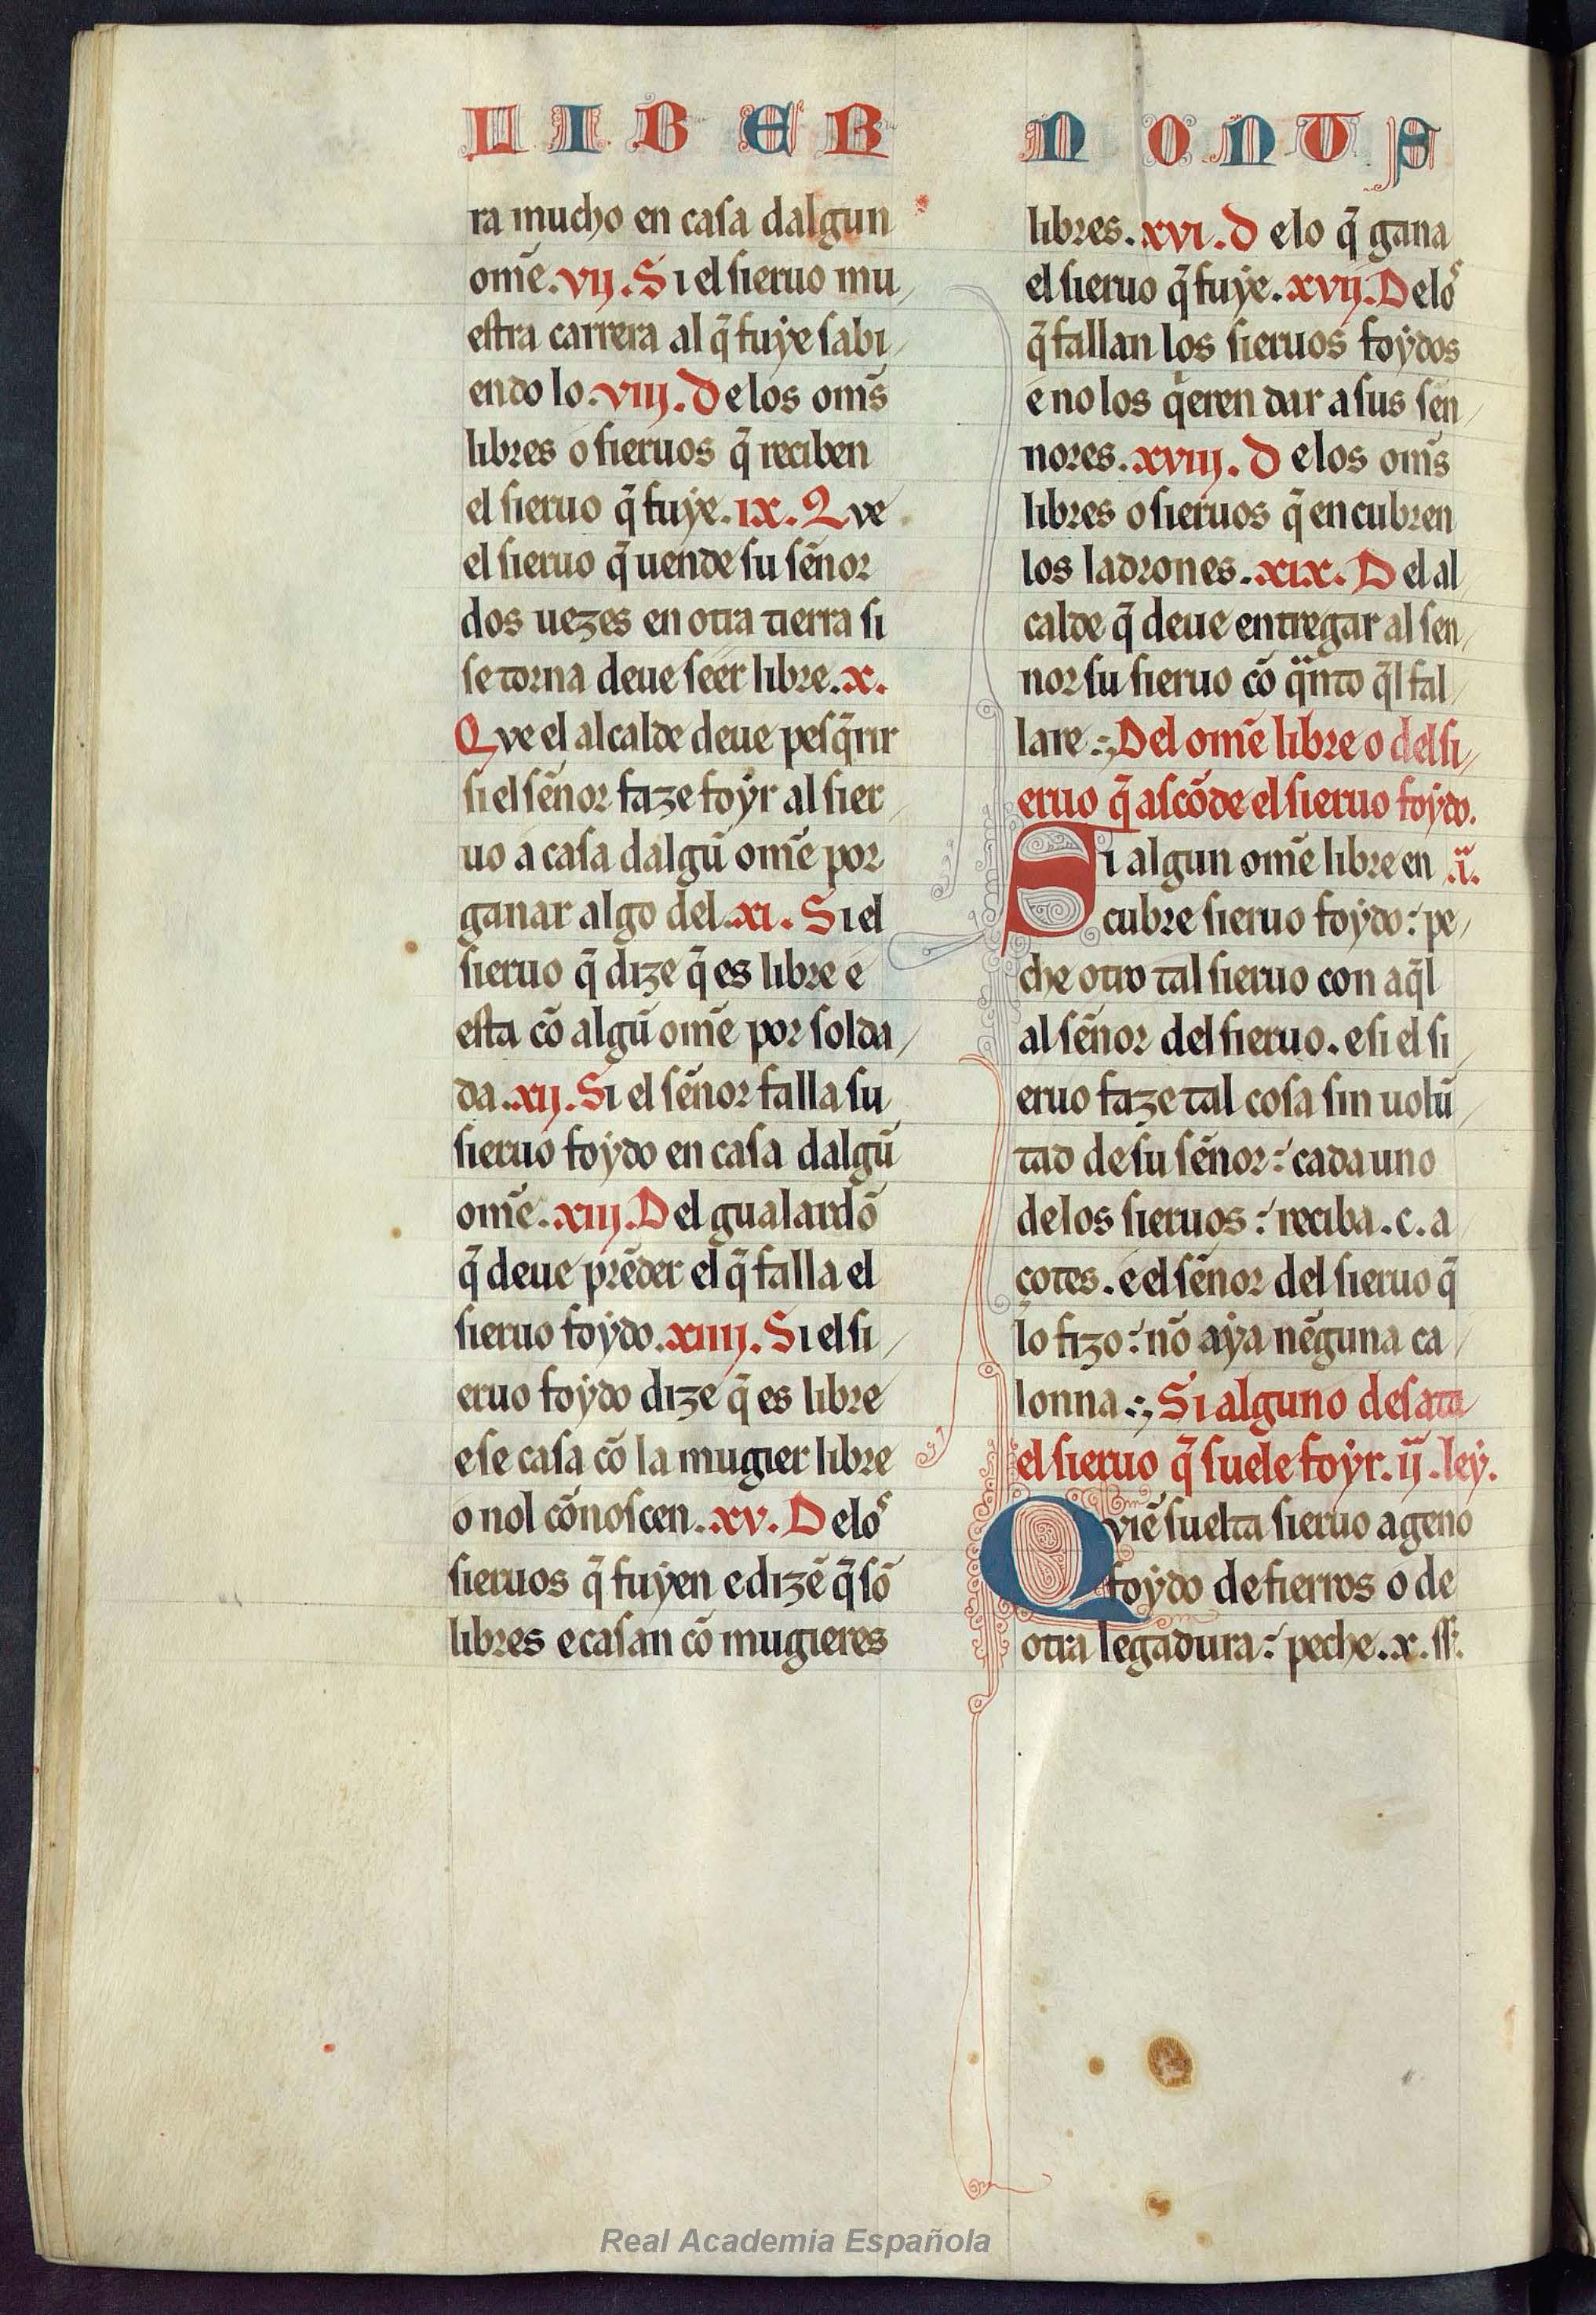 LIBER NONUS
ra mucho en casa dalgun
om̄e. vij. Si el sieruo mu
estra carrera al q̄ fuẏe sabi
endo lo. viij. De los om̄s
libres o sieruos q̄ reciben
el sieruo q̄ fuẏe. ix. Que
el sieruo q̄ uende su sen̄or
dos uezes en otra tierra si
se torna deue seer libre. x.
Que el alcalde deue pesq̄rir
si el sen̄or faze foẏr al sier
uo a casa dalgū om̄e por
ganar algo del. xi. Si el
sieruo q̄ dize q̄ es libre e
esta cō algū om̄e por solda
da. xij. Si el sen̄or falla su
sieruo foẏdo en casa dalgū
om̄e. xiij. Del gualardō
q̄ deue prēder el q̄ falla el
sieruo foẏdo. xiiij. Si el si
eruo foẏdo dize q̄ es libre
e se casa cō la mugier libre
o nol cōnoscen. xv. De los
sieruos q̄ fuẏen e dizē q̄ sō
libres e casan cō mugieres
libres. xvi. De lo q̄ gana
el sieruo q̄ fuẏe. xvij. De los
q̄ fallan los sieruos foẏdos
e no los q̇eren dar a sus sen
nores. xviij. De los om̄s
libres o sieruos q̄ encubren
los ladrones. xix. Del al
calde q̄ deue entregar al sen
nor su sieruo cō qᵃnto q̄l fal
lare. Del om̄e libre o del si
eruo q̄ ascōde el sieruo foẏdo.
Si algun om̄e libre en .i.
cubre sieruo foẏdo: pe
che otro tal sieruo con aq̄l
al sen̄or del sieruo. e si el si
eruo faze tal cosa sin uolū
tad de su sen̄or: cada uno
de los sieruos: reciba. c. a
çotes. e el sen̄or del sieruo q̄
lo fizo: nō aẏa nēguna ca
lonna. Si alguno desata
el sieruo q̄ suele foẏr. ij. leẏ.
Quiē suelta sieruo ageno
foẏdo de fierros o de
otra legadura: peche. x. ſſ.
Real Academia Española